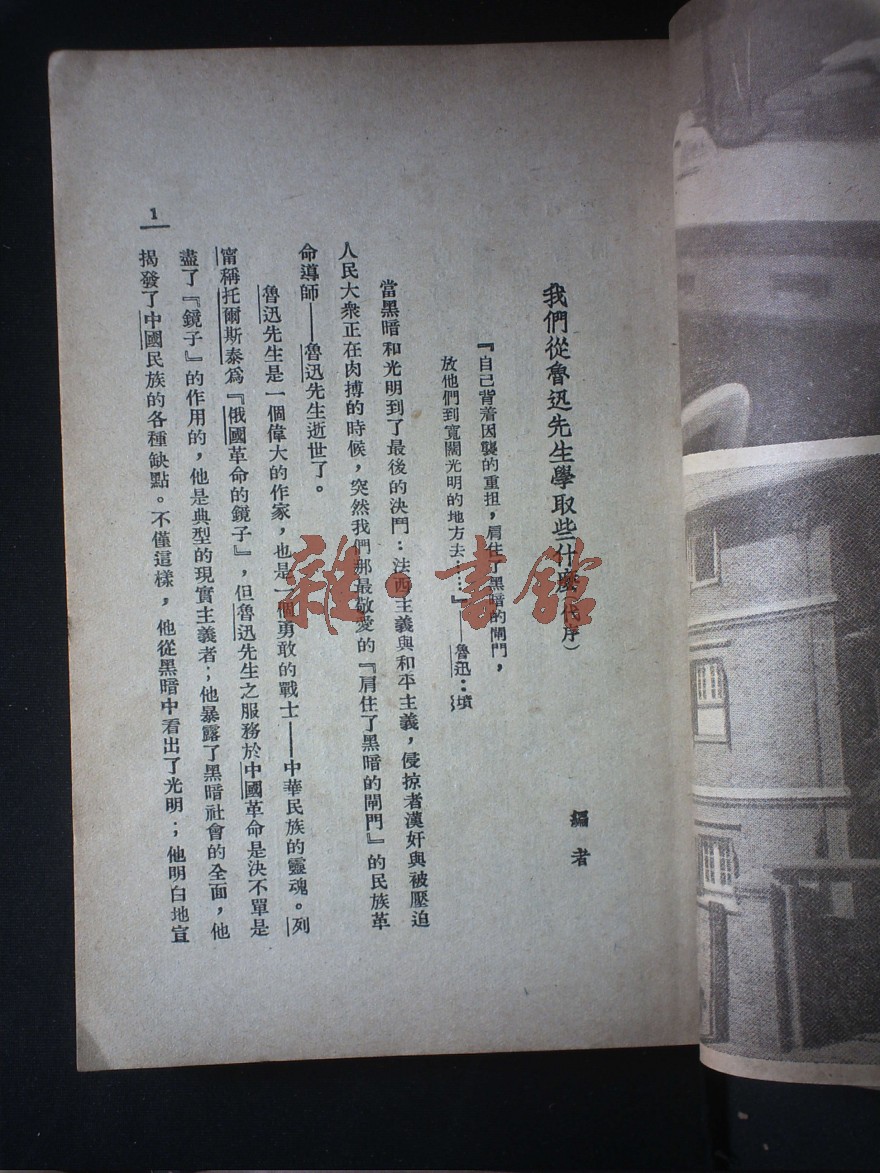 我們從魯迅先生學取些什麼(代序)
編者
『自己背着因襲的重担,肩住了黑暗的閘門,
放他們到寬闊光明的地方去……』——魯迅:墳
當黑暗和光明到了最後的決鬥:法西主義與和平主義,侵掠者漢奸與被壓迫
人民大衆正在肉搏的時候,突然我們那最敬愛的『肩住了黑暗的閘門』的民族革
命導師——魯迅先生逝世了。
魯迅先生是一個偉大的作家,也是一個勇敢的戰士——中華民族的靈魂。列
甯稱托爾斯泰爲『俄國革命的鏡子』,但魯迅先生之服務於中國革命是決不單是
盡了『鏡子』的作用的,他是典型的現實主義者;他暴露了黑暗社會的全面,他
揭發了中國民族的各種缺點。不僅這樣,他從黑暗中看出了光明;他明白地宣
1
雜·書館